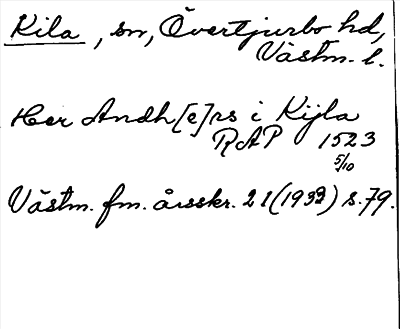 Kila, sn, Övertjurbo hd,
Västm. l.
Her Andh[e]rs i Kijla
RAP 1523
5/10
Västm. fm. årsskr. 21(1932) s.79.